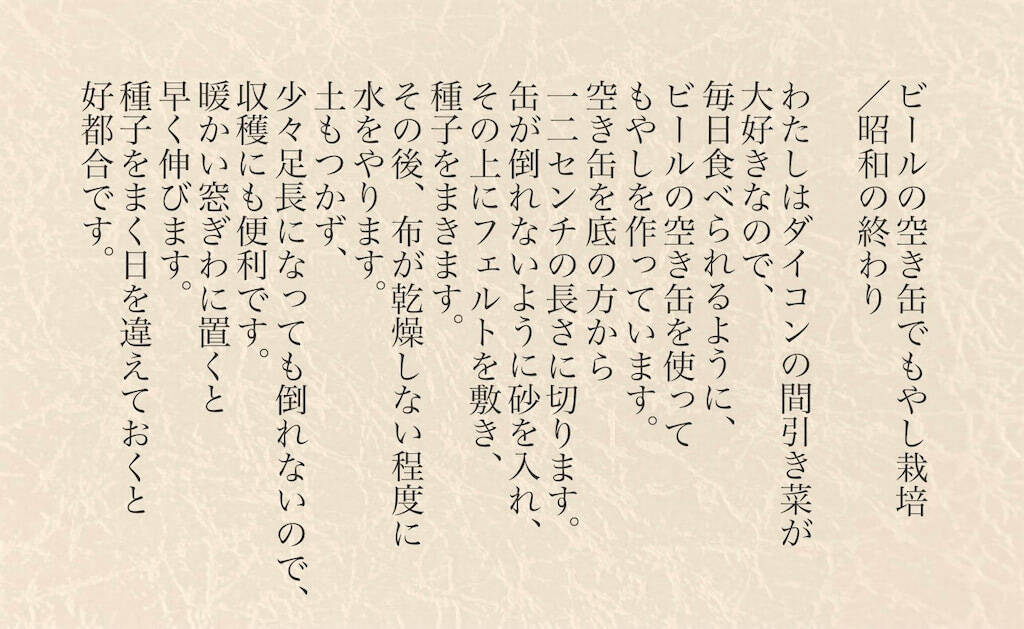 ビールの空き缶でもやし栽培
／昭和の終わり
わたしはダイコンの間引き菜が
大好きなので、
毎日食べられるように、
ビールの空き缶を使って
もやしを作っています。
空き缶を底の方から
一二センチの長さに切ります。
缶が倒れないように砂を入れ、
その上にフェルトを敷き、
種子をまきます。
その後、布が乾燥しない程度に
水をやります。
土もつかず、
少々足長になっても倒れないので、
収穫にも便利です。
暖かい窓ぎわに置くと
早く伸びます。
種子をまく日を違えておくと
好都合です。